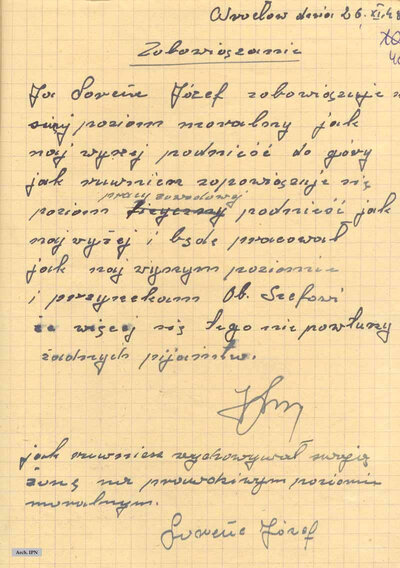 Wrocław dnia 26.XI.48
Zobowiązanie
Ja Józef zobowiązuje
swój poziom moralny jak
naj wyżej podnieść do góry
jak ruwnież zopowiązuje się
pracy zawodowej
poziom podnieść jak
naj wyżej i będę pracował
jak naj wyszym poziomie
i przyrzekam Ob. Szefowi
że więcej się tego nie powtuży
żadnych pijaństw.
jak ruwnież wychowywał swoją
żonę na prawdziwym poziomie
moralnym.
Józef
Arch. IPN